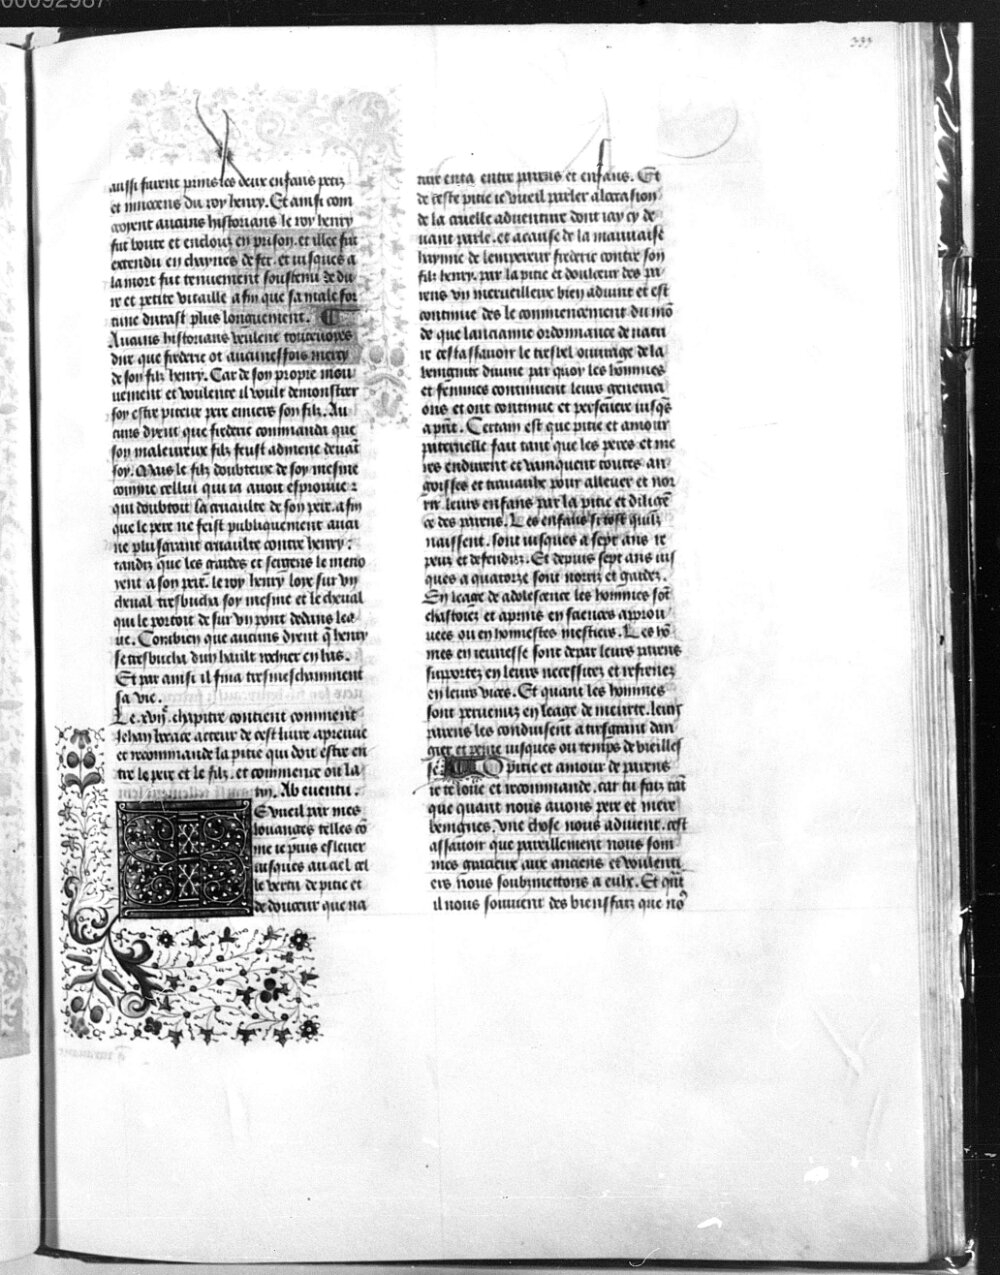 00092987
333
aussi furent prins les deux enfans petiz
et innocens du roy henry. Et ainsi com
aucuns historians le roy henry
fut boute et enclouz en prison. et illec fut
estendu en chaynes de fer. et iusques a
la mort fut tenuement soustenu de du
re et petite vitaille a fin que sa male for
tune durast plus longuement.
Aucuns historians veulent toutesuoies
dire que frederic ot aucunesfois mercy
de son filz henry. Car de son propre mou
uement et voulente il voult demonstrer
soy estre piteux pere enuers son filz. Au
cuns dient que frederic commanda que
son maleureux filz feust admene deuãt
soy. Mais le filz doubteux de soy mesme
comme cellui qui ia auoit esprouue :
qui doubtoit la cruaulte de son pere. a fin
que le pere ne feist publiquement aucu
ne plusgrant cruaulte contre henry :
tandiz que les gardes et sergens le meno
yent a son pere. le roy henry lors sur vn
cheual tresbucha soy mesme et le cheual
qui le portoit de sur vn pont dedans leа
ue. Combien que aucuns dient q̃ henry
se tresbucha dun hault rochier en bas.
Et par ainsi il fina tresmeschamment
sa vie.
Le .xvij.e chapitre contient comment
Jehan bocace acteur de cest liure apreuue
et recommande la pitie qui doit estre en
tre le pere et le filz. et commence ou la
tin. Ab euentu :
E vueil par mes
louanges telles cõ
me ie puis esleuer
iusques au ciel cel
le vertu de pitie et
de douceur que na
ture enta entre parens et enfans. Et
de ceste pitie ie vueil parler a loccasion
de la cruelle aduenture dont iay cy de
uant parle. et a cause de la mauuaise
hayne de lempereur frederic contre son
filz henry. par la pitie et douleur des pa
rens vn merueilleux bien aduint et est
continue des le commencement du mõ
de que lancianne ordonnance de natu
re cest assauoir le tresbel ouurage de la
benignite diuine par quoy les hommes
et femmes continuent leurs generaci
ons et ont continue et perseuere iusq̃s
a pñt. Certain est que pitie et amour
paternelle fait tant que les peres et me
res endurent et vainquent toutes an
goisses et trauaulx pour alleuer et nor
rir leurs enfans par la pitie et diligẽ
ce des parens. Les enfans si tost quilz
naissent. sont iusques a sept ans re
peuz et defenduz. Et depuis sept ans ius
ques a quatorze sont norriz et gardez.
En leage de adolescence les hommes sõt
chastoiez et aprins en sciences approu
uees ou en honnestes mestiers. Les hõ
mes en ieunesse sont de par leurs parens
supportez en leurs necessitez et refrenez
en leurs vices. Et quant les hommes
sont peruenuz en leage de meurte. leurs
parens les conduisent a tresgrant dan
gier et peine iusques ou temps de vieilles
se. O pitie et amour de parens
ie te loue et recommande. car tu faiz tãt
que quant nous auons pere et mere
benignes. vne chose nous aduient. cest
assauoir que pareillement nous som
mes gracieux aux anciens et voulenti
ers nous soubzmettons a eulx. Et q̃nt
il nous souuient des biensfaiz que no9